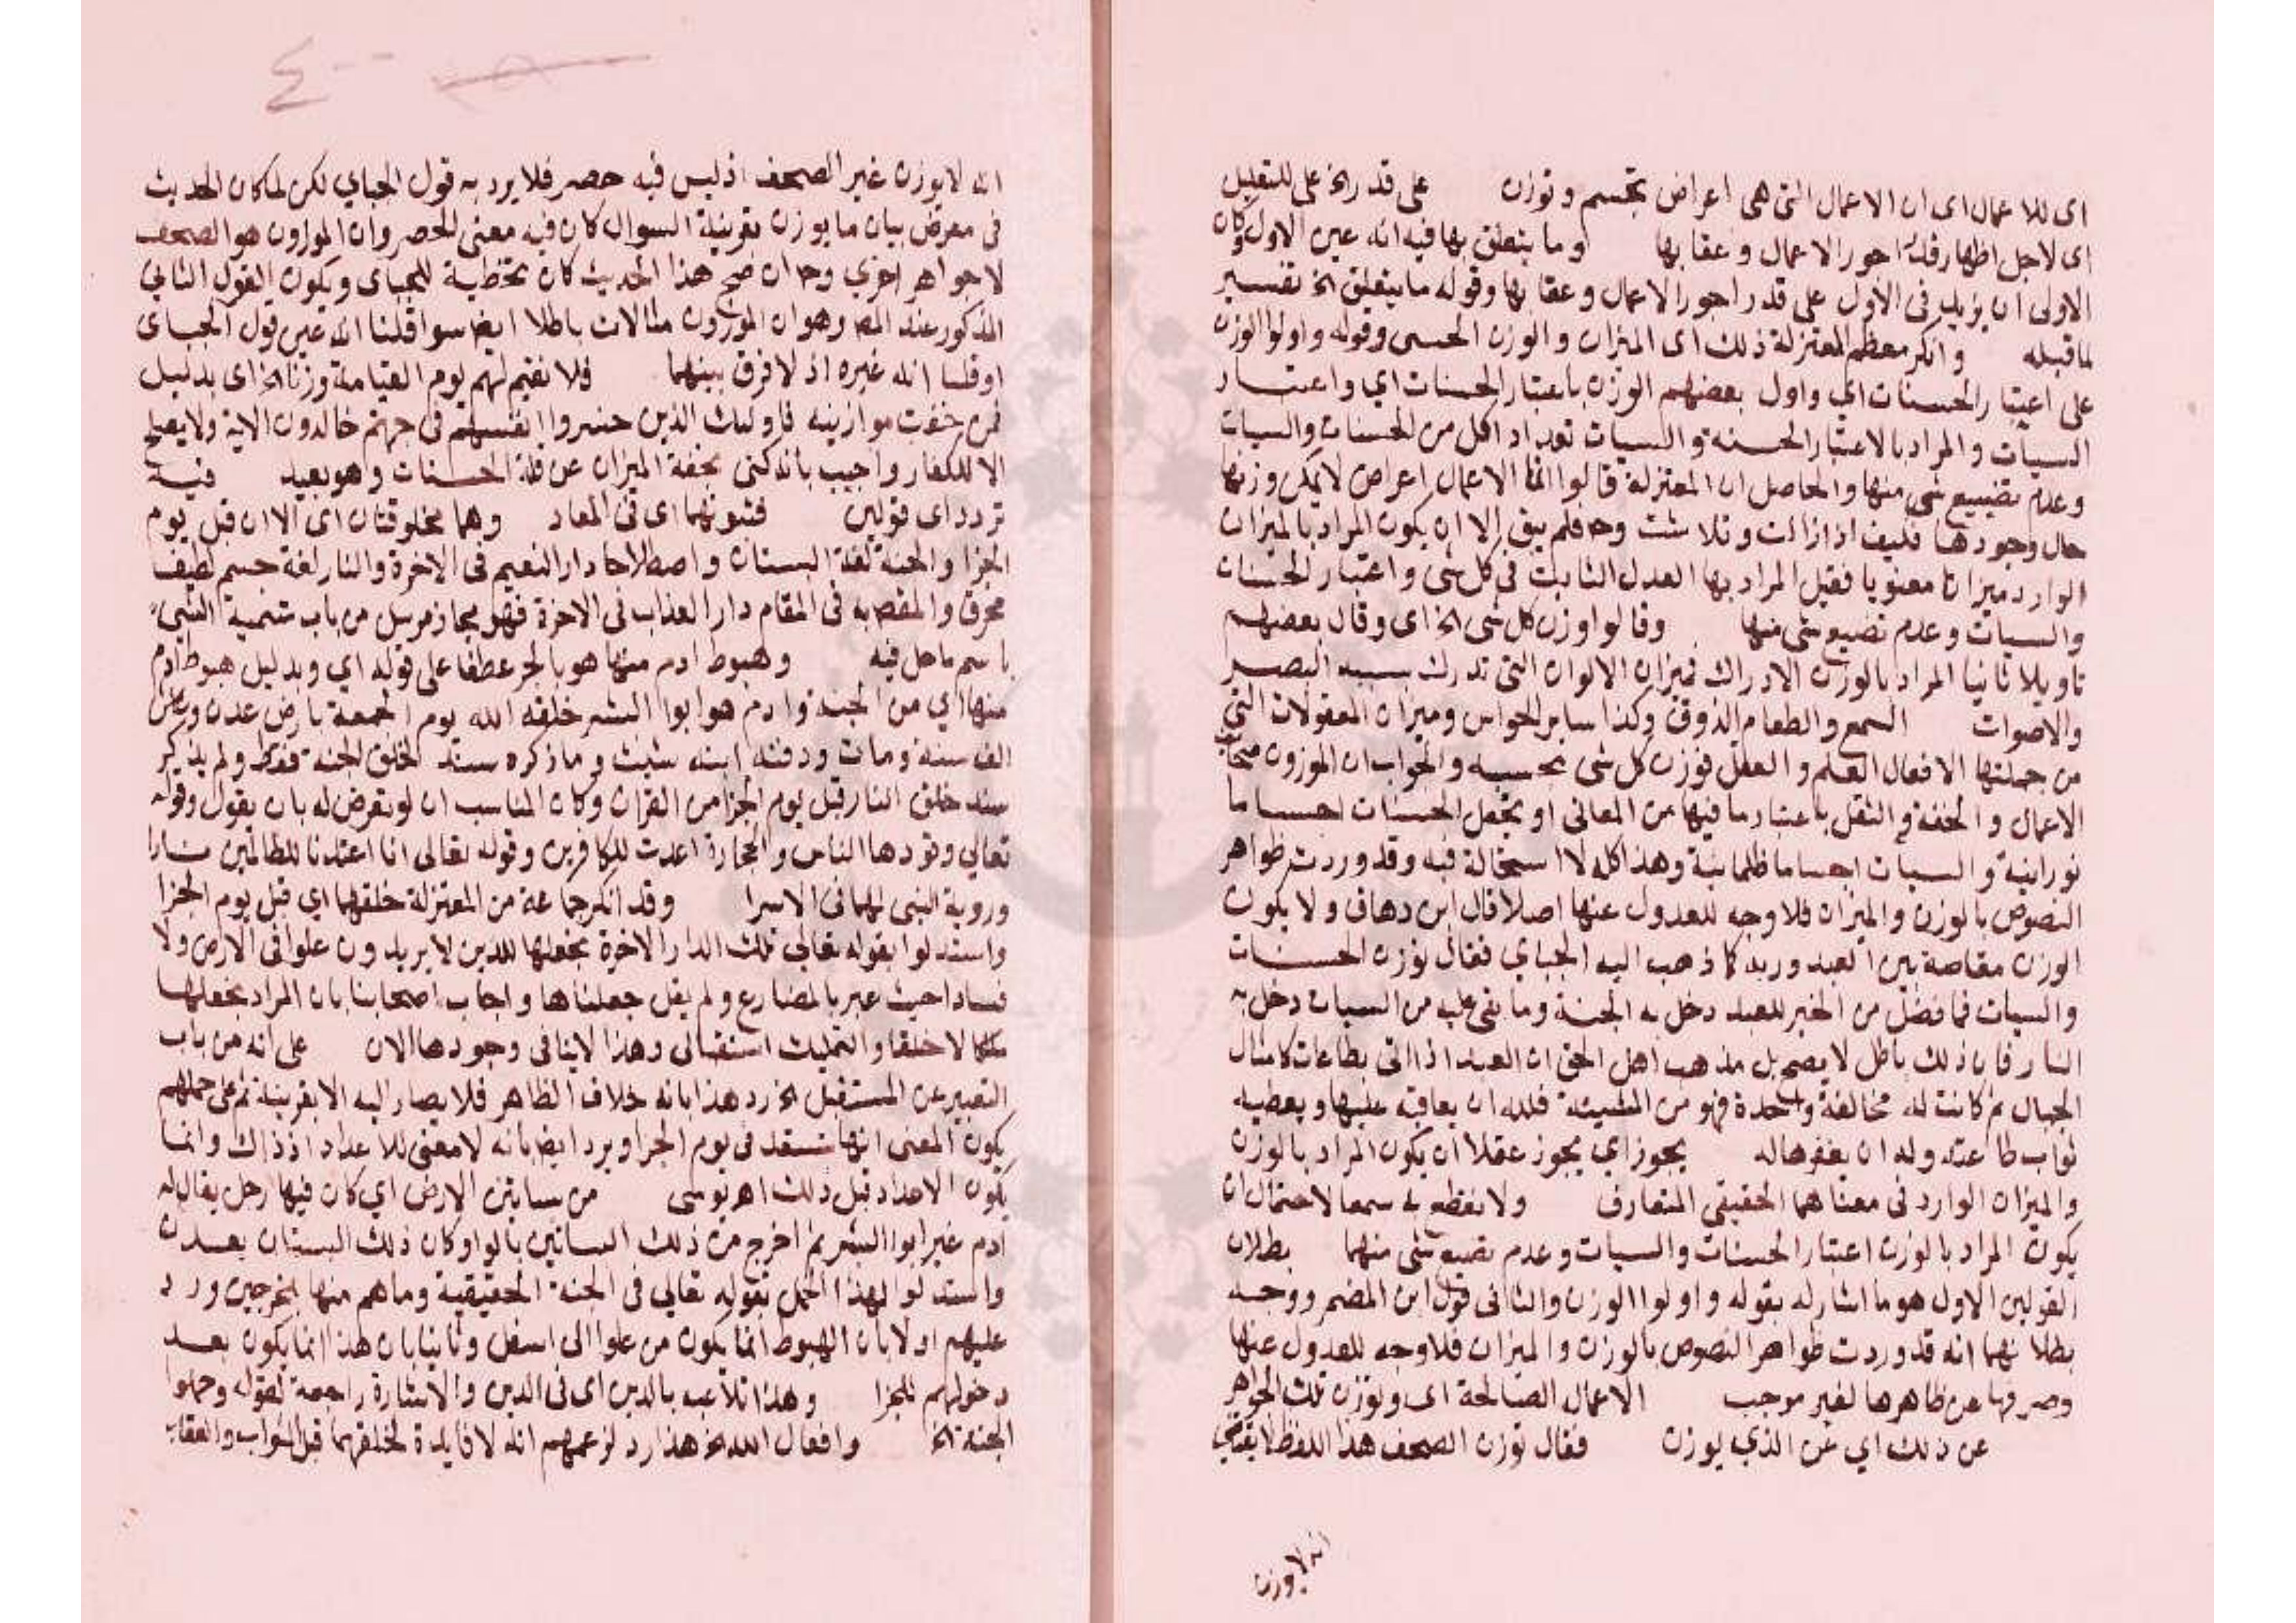 اى للاعمال اى ان الاعمال التى هى اعراض تجسم وتوزن على قدر الخ على للتعليل
اى لاجل اظهار قدر اجور الاعمال وعقابها وما يتعلق بها فيه انه عين الاول وكان
الاولى ان يزيد فى الاول على قدر اجور الاعمال وعقابها وقوله ما يتعلق الخ تفسير
لما قبله وانكر معظم المعتزلة ذلك اى الميزان والوزن الحسى وقوله واولوا الوزن
على اعتبار الحسنات اي واول بعضهم الوزن باعتبار الحسنات اي واعتبار
السيات والمراد بالاعتبار الحسنة والسيات تعداد اكل من الحسنات والسيات
وعدم تضييع شى منها والحاصل ان المعتزلة قالوا انما الاعمال اعراض لا يمكن وزنها
حال وجودها فكيف اذا زالت وتلاشت وح فلم يبق الا ان يكون المراد بالميزان
الوارد ميزانا معنويا فقيل المراد بها العدل الثابت فى كل شى واعتبار الحسنات
والسيات وعدم تضييع شى منها وقالوا وزن كل شى الخ اى وقال بعضهم
تاويلا ثانيا المراد بالوزن الادراك فميزان الالوان التى تدرك بسببه البصر
والاصوات السمع والطعام الذوق وكذا ساير الحواس وميزان المعقولات التى
من جملتها الافعال العلم والعقل فوزن كل شى بحسبه والجواب ان الموزون صحايف
الاعمال والخفة والثقل باعتبار ما فيها من المعانى او بجعل الحسنات اجساما
نورانية والسيات اجساما ظلمانية وهذا كله لا استحالة فيه وقد وردت ظواهر
النصوص بالوزن والميزان فلا وجه للعدول عنها اصلا قال ابن دهاق ولا يكون
الوزن مقاصة بين العبد وربه كما ذهب اليه الجباي فقال توزن الحسنات
والسيات فما فضل من الخير للعبد دخل به الجنة وما بقى عليه من السيات دخل به
النار فان ذلك باطل لا يصح بل مذهب اهل الحق ان العبد اذا اتى بطاعات كامثال
الجبال ثم كانت له مخالفة واحدة فهو من المشيئة فلله ان يعاقبه عليها ويعطيه
ثواب طاعته وله ان يغفرها له يجوز اي يجوز عقلا ان يكون المراد بالوزن
والميزان الوارد فى معناهما الحقيقى المتعارف ولا يقطع به سمعا لاحتمال ان
يكون المراد بالوزن اعتبار الحسنات والسيات وعدم تضييع شى منهما بطلان
القولين الاول هو ما اشار له بقوله واولوا الوزن والثانى قول ابن المضمر ووجه
بطلانهما انه قد وردت ظواهر النصوص بالوزن والميزان فلا وجه للعدول عنها
وصرفها عن ظاهرها لغير موجب الاعمال الصالحة اى وتوزن تلك الجواهر
عن ذلك اي عن الذي يوزن فقال توزن الصحف هذا اللفظ لا يقتضى
انه لا يوزن
٤٠٠
انه لا يوزن غير الصحف اذ ليس فيه حصر فلا يرد به قول الجباي لكن لما كان الحديث
فى معرض بيان ما يوزن بقرينة السوال كان فيه معنى الحصر وان الموزون هو الصحف
لا جواهر اخري وح ان صح هذا الحديث كان تخطية للجباى ويكون القول الثانى
المذكور عند المص وهو ان الموزون مثالات باطلا ايض سوا قلنا انه عين قول الجباى
او قلنا انه غيره اذ لا فرق بينهما فلا نقيم لهم يوم القيامة وزنا الخ اى بدليل
فمن خفت موازينه فاوليك الذين خسروا انفسهم فى جهنم خالدون الاية ولا يصلح
الا للكفار واجيب بانه كنى بخفة الميزان عن قلة الحسنات وهو بعيد فيه
تردد اى قولين فثبوتهما اى فى المعاد وهما مخلوقتان اى الان قبل يوم
الجزا والجنة لغة البستان واصطلاحا دار النعيم فى الاخرة والنار لغة جسم لطيف
محرق والمقص به فى المقام دار العذاب فى الاخرة فهو مجاز مرسل من باب تسمية الشى
باسم ما حل فيه وهبوط ادم منها هو بالجر عطفا على قوله اي وبدليل هبوط ادم
منها اي من الجنة وادم هو ابوا البشر خلقه الله يوم الجمعة بارض عدن وعاش
الف سنة ومات ودفنه ابنه شيث وما ذكره سند لخلق الجنة فقط ولم يذكر
سند خلق النار قبل يوم الجزا من القران وكان المناسب ان لو تعرض له بان يقول وقوله
تعالي وقودها الناس والحجارة اعدت للكافرين وقوله تعالى انا اعتدنا للظالمين نارا
وروية النبى لهما فى الاسرا وقد انكر جماعة من المعتزلة خلقهما اي قبل يوم الجزا
واستدلوا بقوله تعالى تلك الدار الاخرة نجعلها للذين لا يريدون علوا فى الارض ولا
فسادا حيث عبر بالمضارع ولم يقل جعلناها واجاب اصحابنا بان المراد نجعلها
ملكا لا خلقا والتمليك استقبالى وهذا لا ينافى وجودها الان على انه من باب
التعبير عن المستقبل الخ رد هذا بانه خلاف الظاهر فلا يصار اليه الا بقرينة ثم على حملهم
يكون المعنى انها ستعد فى يوم الجزا ويرد ايض بانه لا معنى للاعداد اذ ذاك وانما
يكون الاعداد قبل ذلك اهر يوسى من بساتين الارض اي كان فيها رجل يقال له
ادم غير ابوا البشر ثم اخرج من ذلك البساتين بالواو كان ذلك البستان بعدن
واستدلوا لهذا الحمل بقوله تعالي فى الجنة الحقيقية وما هم منها بمخرجين ورد
عليهم اولا بان الهبوط انما يكون من علوا الى اسفل وثانيا بان هذا انما يكون بعد
دخولهم للجزا وهذا تلاعب بالدين اى فى الدين والاشارة راجعة لقوله وحملوا
الجنة الخ وافعال الله الخ هذا رد لزعمهم انه لا فايدة لخلقهما قبل الثواب والعقاب